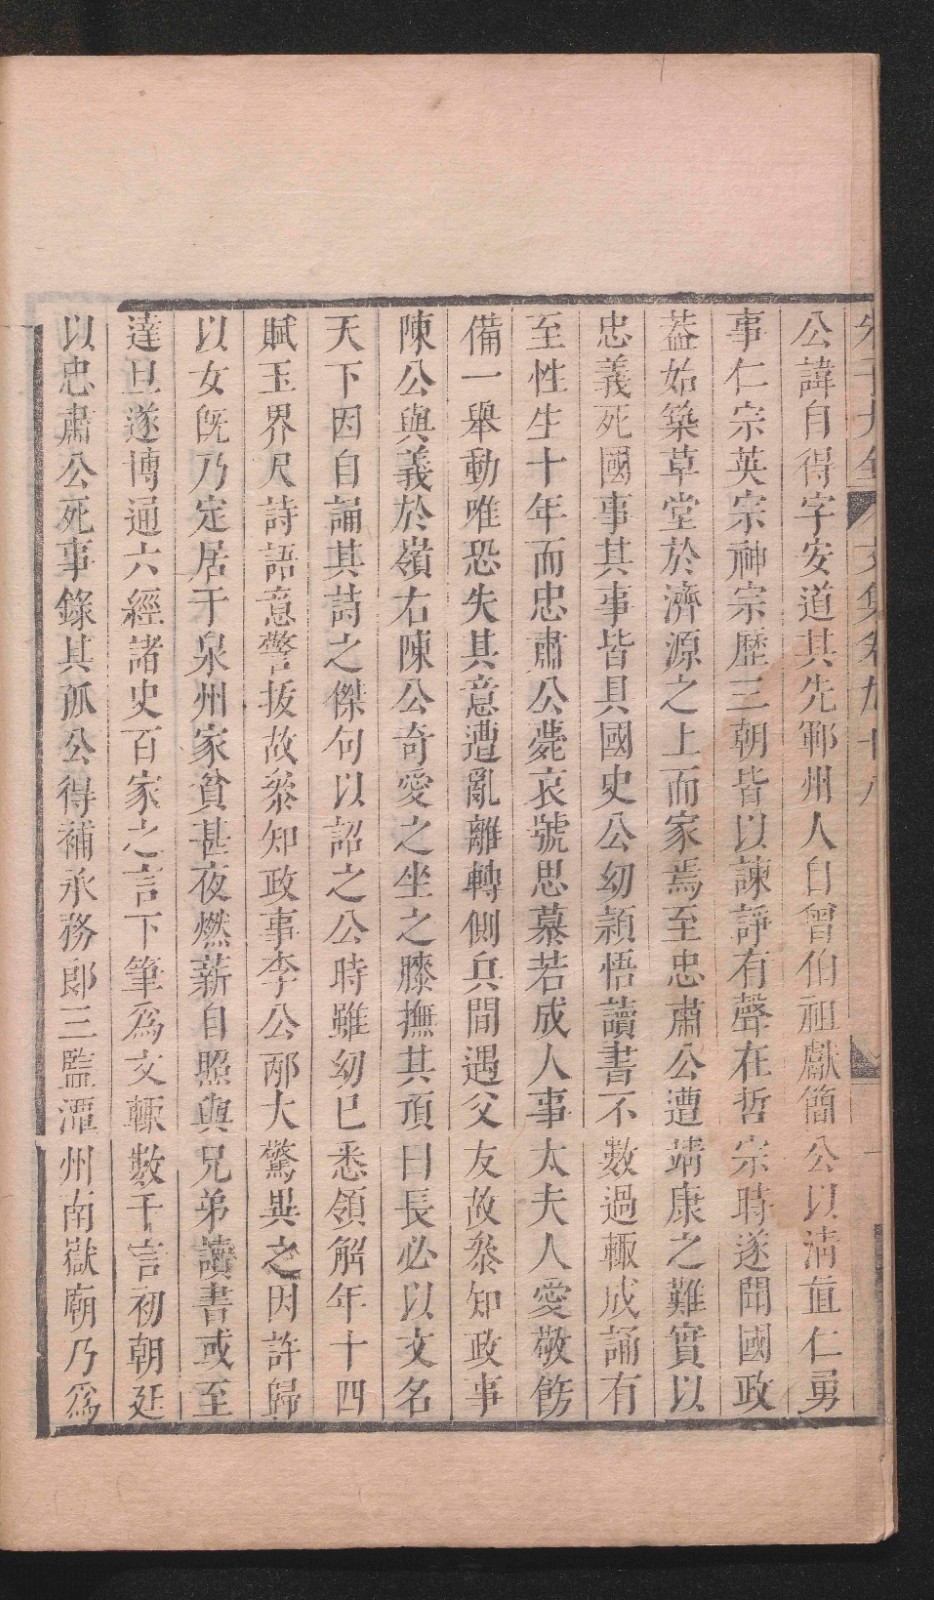 朱子大全 文集卷九十八
公諱自得字安道其先鄆州人自曾伯祖獻簡公以清直仁勇
事仁宗英宗神宗歷三朝皆以諫諍有聲在哲宗時遂聞國政
葢始築草堂於濟源之上而家焉至忠肅公遭靖康之難實以
忠義死國事其事皆具國史公幼穎悟讀書不數過輒成誦有
至性生十年而忠肅公薨哀號思慕若成人事太夫人愛敬飭
備一舉動唯恐失其意遭亂離轉側兵間遇父友故叅知政事
陳公與義於嶺右陳公奇愛之坐之膝撫其頂曰長必以文名
天下因自誦其詩之傑句以詔之公時雖幼已悉領解年十四
賦玉界尺詩語意警拔故叅知政事李公邴大驚異之因許歸
以女旣乃定居于泉州家貧甚夜燃薪自照與兄弟讀書或至
達旦遂博通六經諸史百家之言下筆爲文輒數千言初朝廷
以忠肅公死事錄其孤公得補承務郎三監潭州南嶽廟乃爲